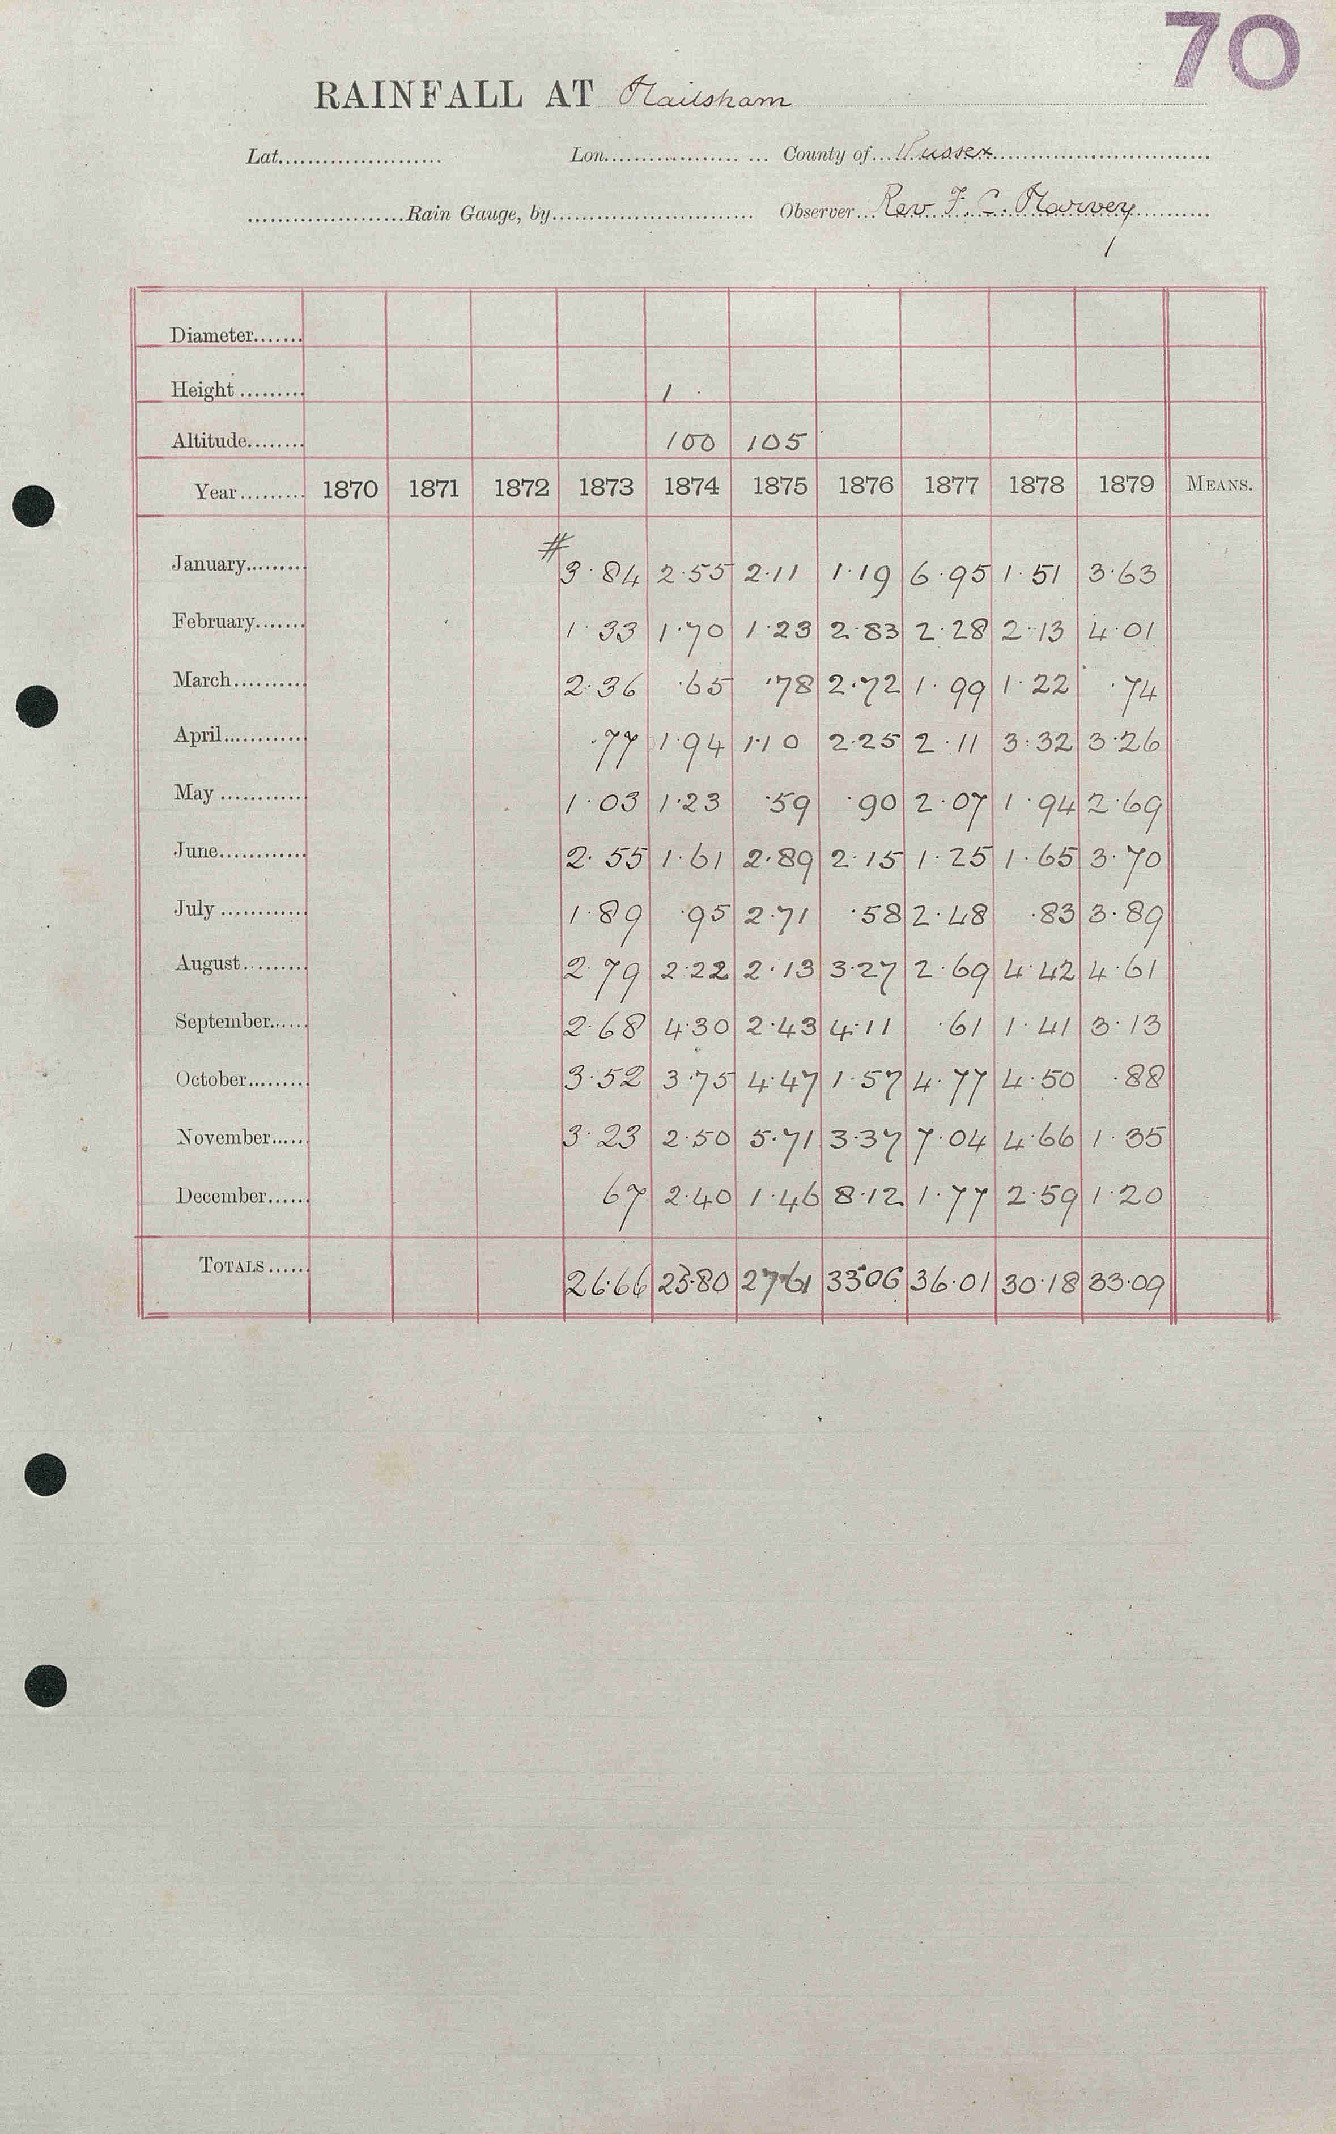 70
RAINFALL AT Hailsham
Lat. Lon. County of Sussex
Rain Gauge, by Observer Rev F. C. Harvey
Diameter
Height 1
Altitude 100 105
Year 1870 1871 1872 1873 1874 1875 1876 1877 1878 1879 MEANS.
#
January 3.84 2.55 2.11 1.19 6.95 1.51 3.63
February 1.33 1.70 1.23 2.83 2.28 2.13 4.01
March 2.36 .65 .78 2.72 1.99 1.22 .74
April .77 1.94 1.10 2.25 2.11 3.32 3.26
May 1.03 1.23 .59 .90 2.07 1.94 2.69
June 2.55 1.61 2.89 2.15 1.25 1.65 3.70
July 1.89 .95 2.71 .58 2.48 .83 3.89
August 2.79 2.22 2.13 3.27 2.69 4.42 4.61
September 2.68 4.30 2.43 4.11 .61 1.41 3.13
October 3.52 3.75 4.47 1.57 4.77 4.50 .88
November 3.23 2.50 5.71 3.37 7.04 4.66 1.35
December 67 2.40 1.46 8.12 1.77 2.59 1.20
TOTALS 26.66 25.80 27.61 33.06 36.01 30.18 33.09